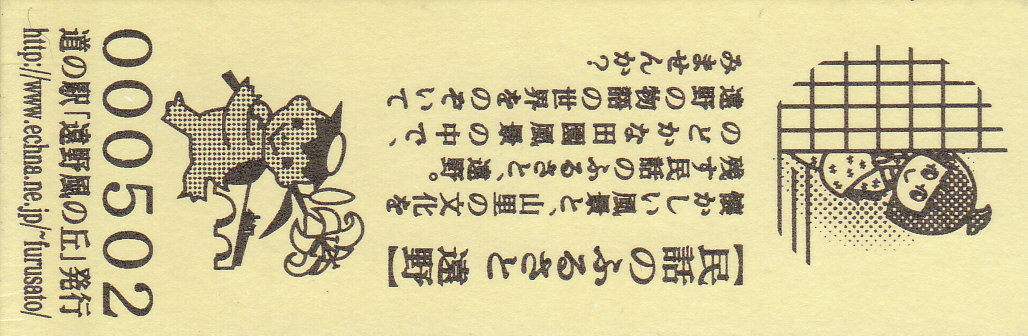 【民話のふるさと 遠野】
懐かしい風景と、山里の文化を
残す民話のふるさと、遠野。
のどかな田園風景の中で、
遠野の物語の世界をのぞいて
みませんか?
0000502
道の駅「遠野風の丘」発行
http://www.echna.ne.jp/~furusato/